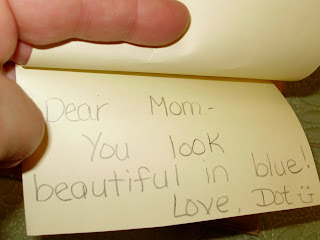 Dear Mom-
You look
beautiful in blue!
Love, Dot